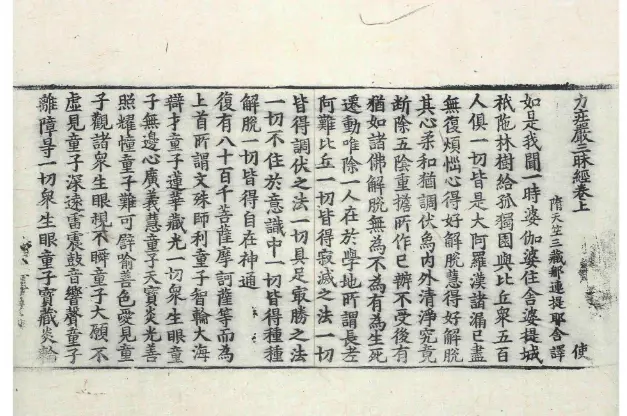 力莊嚴三昧經卷上 使
隋天竺三藏那連提耶舍譯
如是我聞一時婆伽婆住舍婆提城
祇陁林樹給孤獨園與比丘衆五百
人俱一切皆是大阿羅漢諸漏已盡
無復煩惱心得好解脫慧得好解脫
其心柔和猶調伏象內外清淨究竟
斷除五陰重擔所作已辦不受後有
猶如諸佛解脫無為不為有為生死
遷動唯除一人在於學地所謂長老
阿難比丘一切皆得寂滅之法一切
皆得調伏之法一切具足最勝之法
一切不住於意識中一切皆得種種
解脫一切皆得自在神通
復有八十百千菩薩摩訶薩等而為
上首所謂文殊師利童子智輪大海
辯才童子蓮華藏光一切衆生眼童
子無邊心廣義慧童子天寶炎光善
照耀憧童子難可譬喻善色愛見童
子觀諸衆生眼視不瞬童子大願不
虛見童子深遠雷震鼓音響聲童子
離障㝵一切衆生眼童子寶藏炎輪